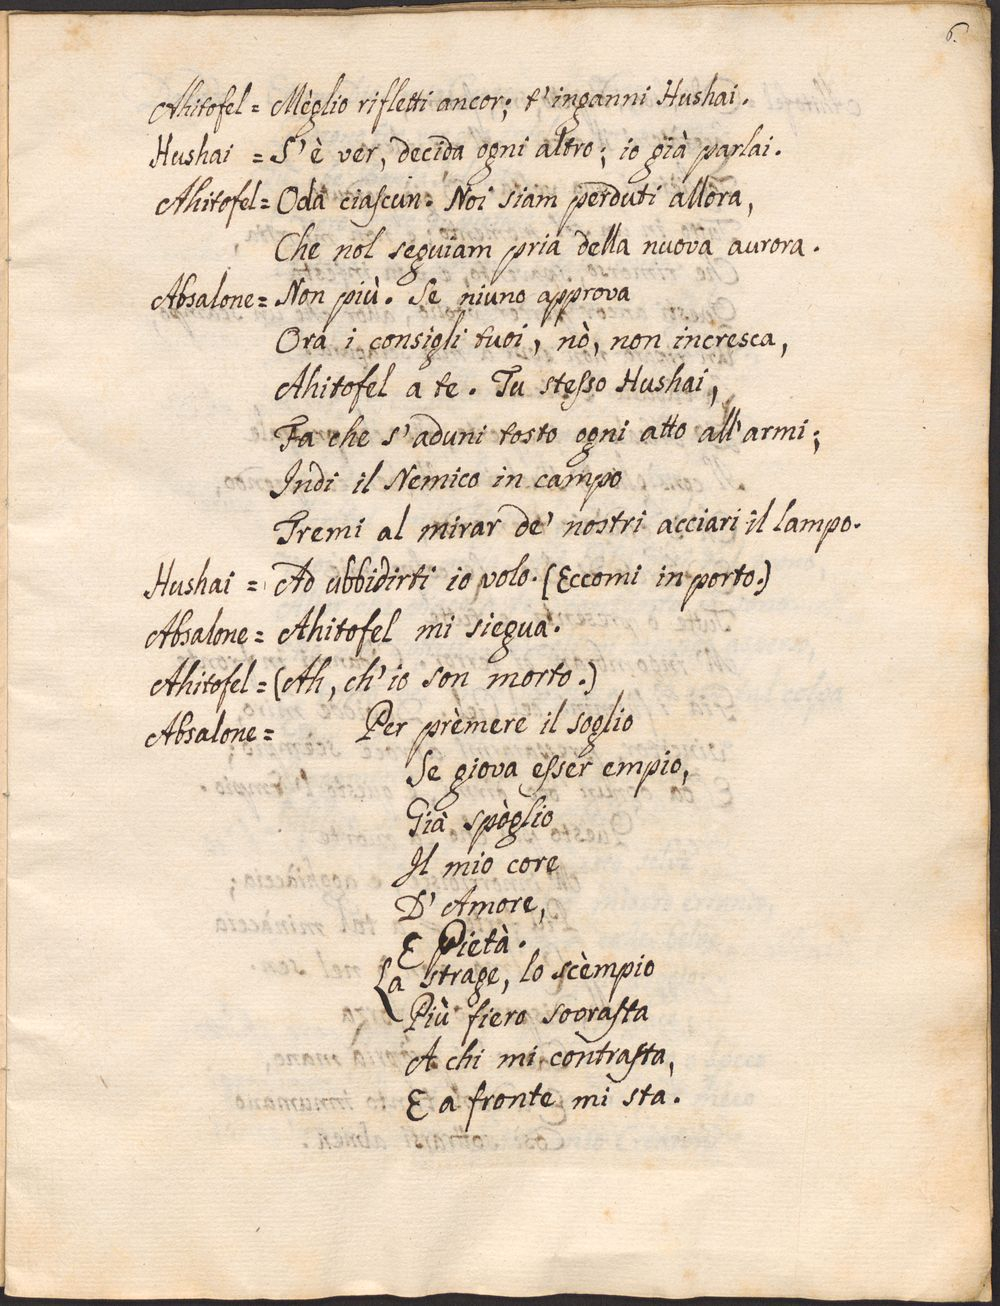 6.
Ahitofel = Mèglio rifletti ancor; t'inganni Hushai.
Hushai = S'è ver, decida ogni altro; io già parlai.
Ahitofel = Oda ciascun. Noi siam perduti allora,
Che nol seguiam pria della nuova aurora.
Absalone = Non più. Se niuno approva
Ora i consigli tuoi, nò, non incresca,
Ahitofel a te. Tu stesso Hushai,
Fa che s'aduni tosto ogni atto all'armi;
Indi il Nemico in campo
Tremi al mirar de' nostri acciari il lampo.
Hushai = Ad ubbidirti io volo. (Eccomi in porto.)
Absalone = Ahitofel mi siegua.
Ahitofel = (Ah, ch'io son morto.)
Absalone = Per prèmere il soglio
Se giova esser empio,
Già spòglio
Il mio core
D'Amore,
E Pietà.
La strage, lo scèmpio
Più fiero sovrasta
A chi mi contrasta,
E a fronte mi sta.